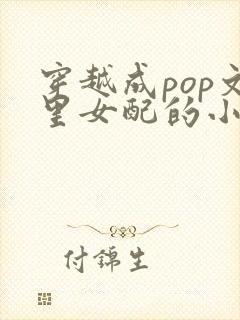 穿越成pop文
里女配的小
付錦生